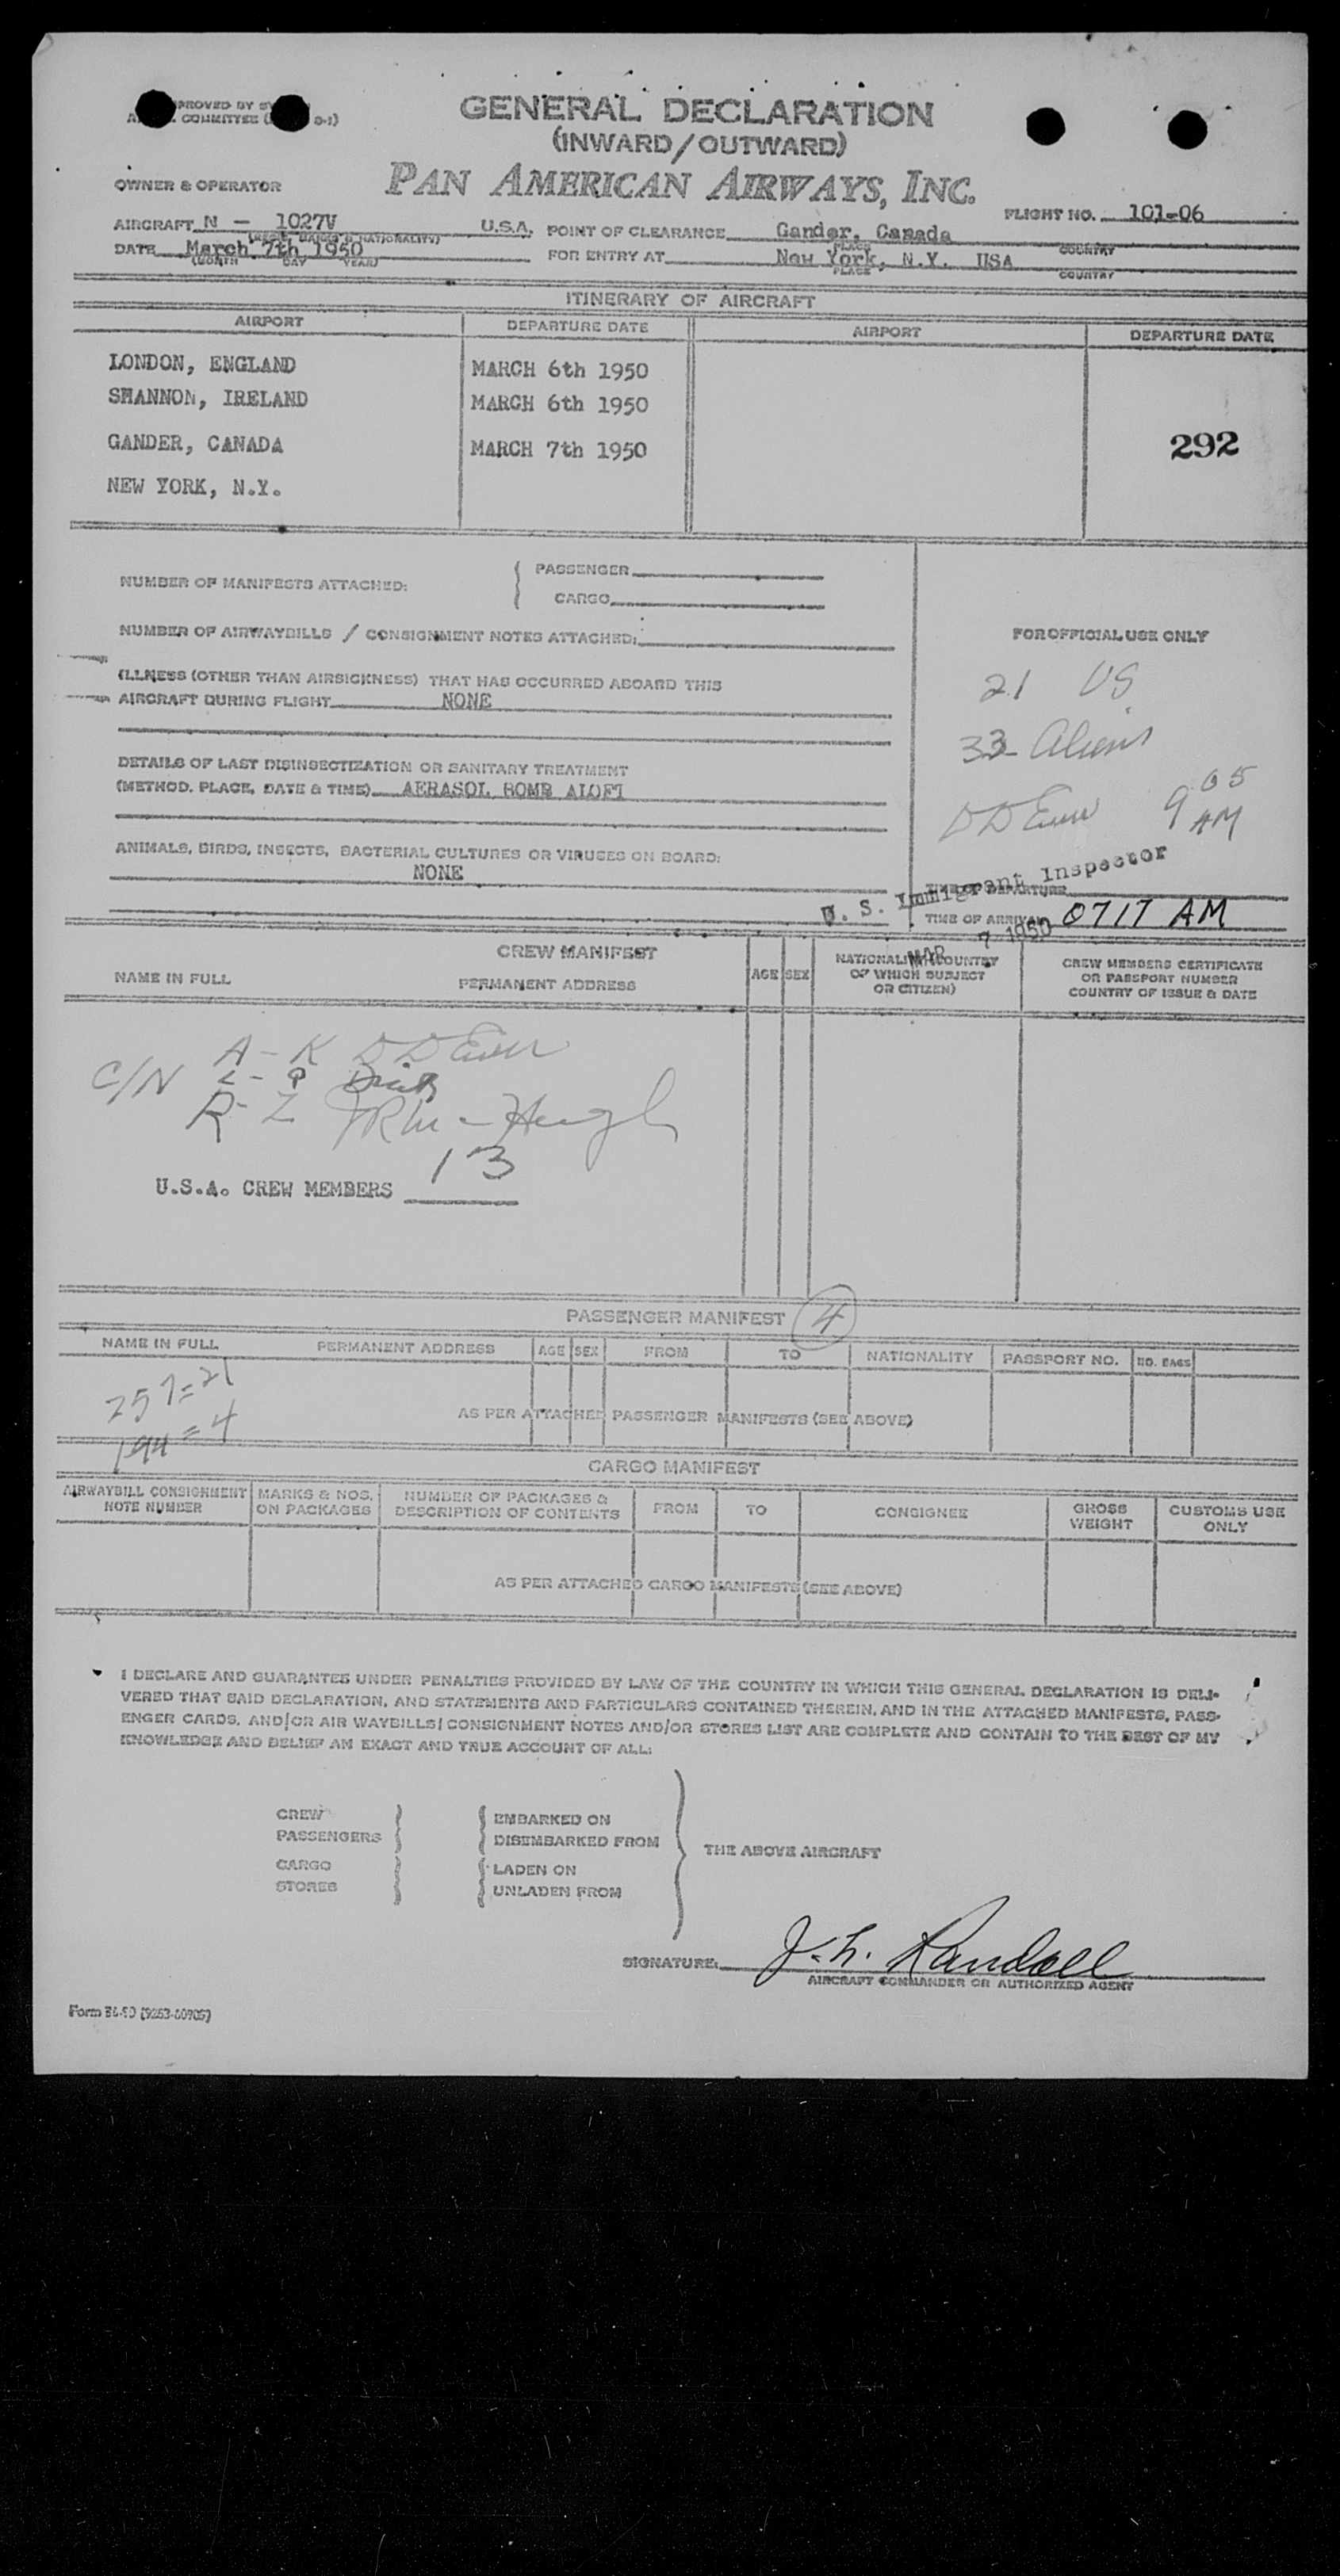 PROVED BY
COMMITTEE
GENERAL DECLARATION
(INWARD/OUTWARD)
OWNER & OPERATOR
PAN AMERICAN AIRWAYS, INC.
FLIGHT NO. 101-06
AIRCRAFT N - 1027V U.S.A. POINT OF CLEARANCE Gander, Canada
(REG'N MARKS & NATIONALITY) PLACE COUNTRY
DATE March 7th 1950 FOR ENTRY AT New York, N.Y. USA
(MONTH DAY YEAR) PLACE COUNTRY
ITINERARY OF AIRCRAFT
AIRPORT DEPARTURE DATE AIRPORT DEPARTURE DATE
LONDON, ENGLAND MARCH 6th 1950
SHANNON, IRELAND MARCH 6th 1950
GANDER, CANADA MARCH 7th 1950 292
NEW YORK, N.Y.
NUMBER OF MANIFESTS ATTACHED: PASSENGER
CARGO
NUMBER OF AIRWAYBILLS / CONSIGNMENT NOTES ATTACHED:
FOR OFFICIAL USE ONLY
ILLNESS (OTHER THAN AIRSICKNESS) THAT HAS OCCURRED ABOARD THIS
AIRCRAFT DURING FLIGHT NONE
21 US
33 Aliens
DETAILS OF LAST DISINSECTIZATION OR SANITARY TREATMENT
(METHOD, PLACE, DATE & TIME) AERASOL BOMB ALOFT
9 05 AM
ANIMALS, BIRDS, INSECTS, BACTERIAL CULTURES OR VIRUSES ON BOARD:
NONE
U. S. Immigrant Inspector
TIME OF ARRIVAL 0717 AM
MAR 7 1950
CREW MANIFEST
NAME IN FULL PERMANENT ADDRESS AGE SEX NATIONALITY (COUNTRY
OF WHICH SUBJECT
OR CITIZEN)
CREW MEMBERS CERTIFICATE
OR PASSPORT NUMBER
COUNTRY OF ISSUE & DATE
A - K
C/N L - Q
R - Z
U.S.A. CREW MEMBERS 13
PASSENGER MANIFEST 4
NAME IN FULL PERMANENT ADDRESS AGE SEX FROM TO NATIONALITY PASSPORT NO. NO. BAGS
257 = 21
194 = 4
AS PER ATTACHED PASSENGER MANIFESTS (SEE ABOVE)
CARGO MANIFEST
AIRWAYBILL CONSIGNMENT
NOTE NUMBER
MARKS & NOS.
ON PACKAGES
NUMBER OF PACKAGES &
DESCRIPTION OF CONTENTS
FROM TO CONSIGNEE
GROSS
WEIGHT
CUSTOMS USE
ONLY
AS PER ATTACHED CARGO MANIFESTS (SEE ABOVE)
I DECLARE AND GUARANTEE UNDER PENALTIES PROVIDED BY LAW OF THE COUNTRY IN WHICH THIS GENERAL DECLARATION IS DELI-
VERED THAT SAID DECLARATION, AND STATEMENTS AND PARTICULARS CONTAINED THEREIN, AND IN THE ATTACHED MANIFESTS, PASS-
ENGER CARDS, AND/OR AIR WAYBILLS/CONSIGNMENT NOTES AND/OR STORES LIST ARE COMPLETE AND CONTAIN TO THE BEST OF MY
KNOWLEDGE AND BELIEF AN EXACT AND TRUE ACCOUNT OF ALL:
CREW EMBARKED ON
PASSENGERS DISEMBARKED FROM
THE ABOVE AIRCRAFT
CARGO LADEN ON
STORES UNLADEN FROM
SIGNATURE: J. L. Randall
AIRCRAFT COMMANDER OR AUTHORIZED AGENT